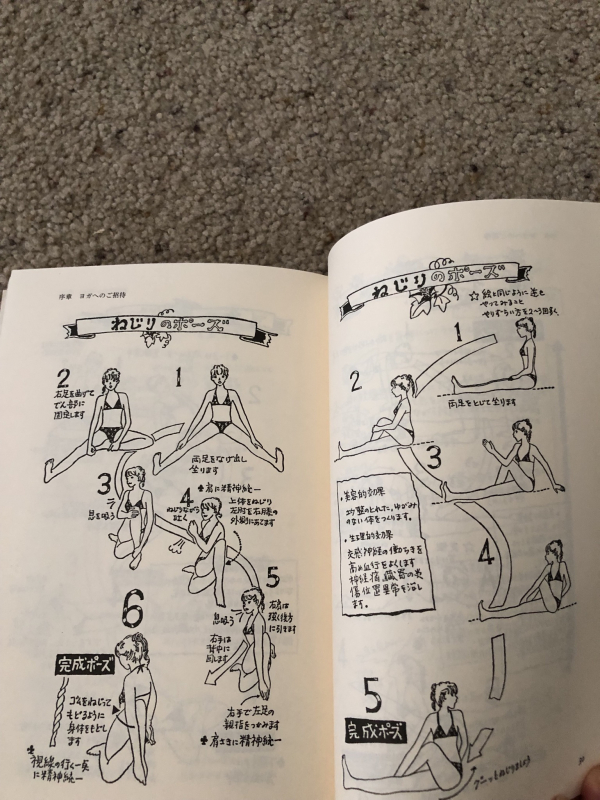 序章 ヨガへのご招待
ねじりのポーズ
2
右足を曲げて
でん部に
固定します
1
両足をなげ出し
坐ります
3
息を吸う
4
肩に精神統一
ねじりながら
吐く
上体をねじり
左肘を右膝の
外側にあてます
5
右肩は
強く後方
に引きます
息吸う
右手は
背中に
回します
右手で左足の
親指をつかみます
肩さきに精神統一
6
完成ポーズ
ゴムをねじって
もどるように
身体をもどし
ます
視線の行く一点
に精神統一
ねじりのポーズ
☆絵と同じように逆も
やってみること
やりずらい方を2〜3回多く
1
両足をとじて坐ります
2
3
・美容的効果
均整のとれた、ゆがみ
のない体をつくります。
・生理的効果
交感神経の働きを
高め血行をよくします
神経痛、臓器の炎
傷位置異常を治し
ます。
4
5
完成ポーズ
グーッとねじりましょう